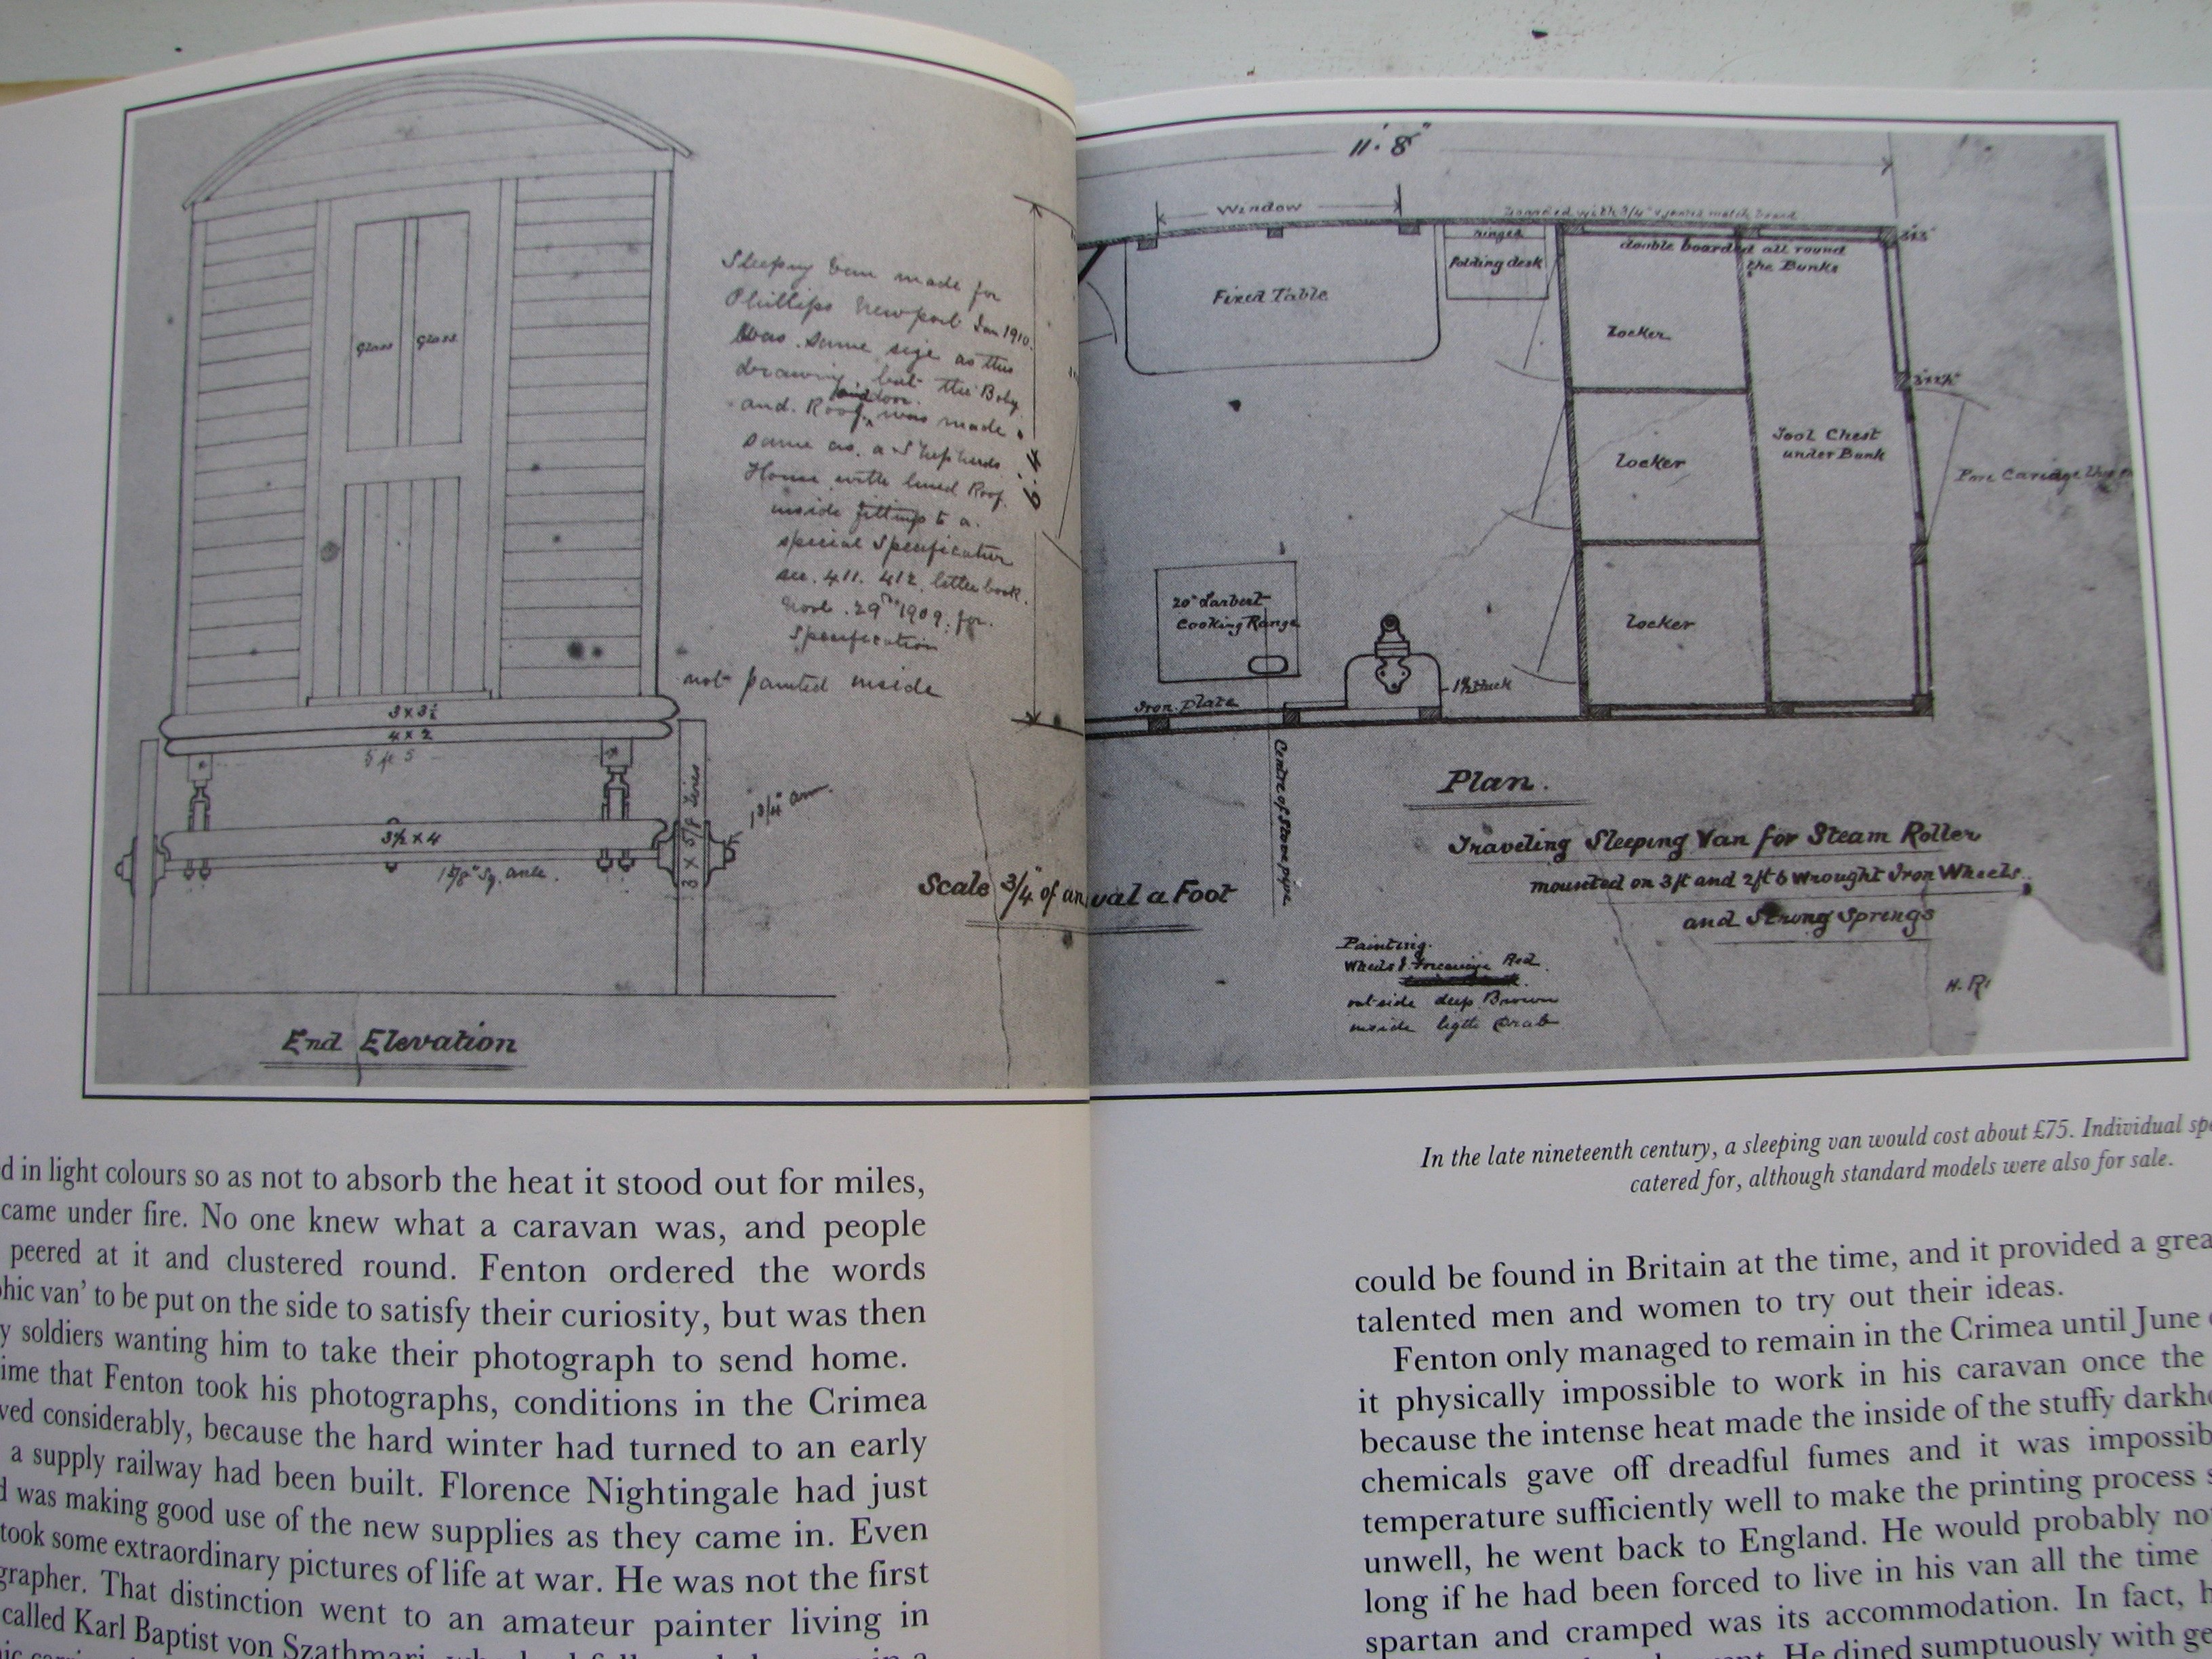 Glass Glass
Sleeping Van made for
Phillips Newport Jan 1910.
Was same size as this
drawing, but the Body
and door.
and. Roof, was made
same as. a Shepherds
House with lined Roof.
inside fittings to a.
special Specification
see. 411. 412. letter book.
Novb. 29th 1909. for.
Specification
not painted inside
6' 4"
3 x 3½
4 x 2
5 ft 5
3½ x 4
1⅝" Sq. axle.
3 x 5/8 Tires
1¾" arm
End Elevation
Scale ¾" of an
ual a Foot
11' 8"
Window
double boarded all round
the Bunks
3x3"
folding desk
Fixed Table
Locker
Locker
Locker
Tool Chest
under Bunk
Fore Carriage
20"
Cooking Range
Iron Plate
1½ thick
Centre of Stove pipe
Plan.
Traveling Sleeping Van for Steam Roller
mounted on 3ft and 2ft 6 Wrought Iron Wheels
and Strong Springs
Painting.
Wheels & Forecarriage Red.
out-side deep Brown
inside light Drab
d in light colours so as not to absorb the heat it stood out for miles,
came under fire. No one knew what a caravan was, and people
peered at it and clustered round. Fenton ordered the words
phic van’ to be put on the side to satisfy their curiosity, but was then
y soldiers wanting him to take their photograph to send home.
ime that Fenton took his photographs, conditions in the Crimea
ved considerably, because the hard winter had turned to an early
a supply railway had been built. Florence Nightingale had just
d was making good use of the new supplies as they came in. Even
took some extraordinary pictures of life at war. He was not the first
grapher. That distinction went to an amateur painter living in
called Karl Baptist von Szathmari,
In the late nineteenth century, a sleeping van would cost about £75. Individual spe
catered for, although standard models were also for sale.
could be found in Britain at the time, and it provided a grea
talented men and women to try out their ideas.
Fenton only managed to remain in the Crimea until June
it physically impossible to work in his caravan once the
because the intense heat made the inside of the stuffy darkh
chemicals gave off dreadful fumes and it was impossib
temperature sufficiently well to make the printing process s
unwell, he went back to England. He would probably no
long if he had been forced to live in his van all the time
spartan and cramped was its accommodation. In fact, h
He dined sumptuously with ge